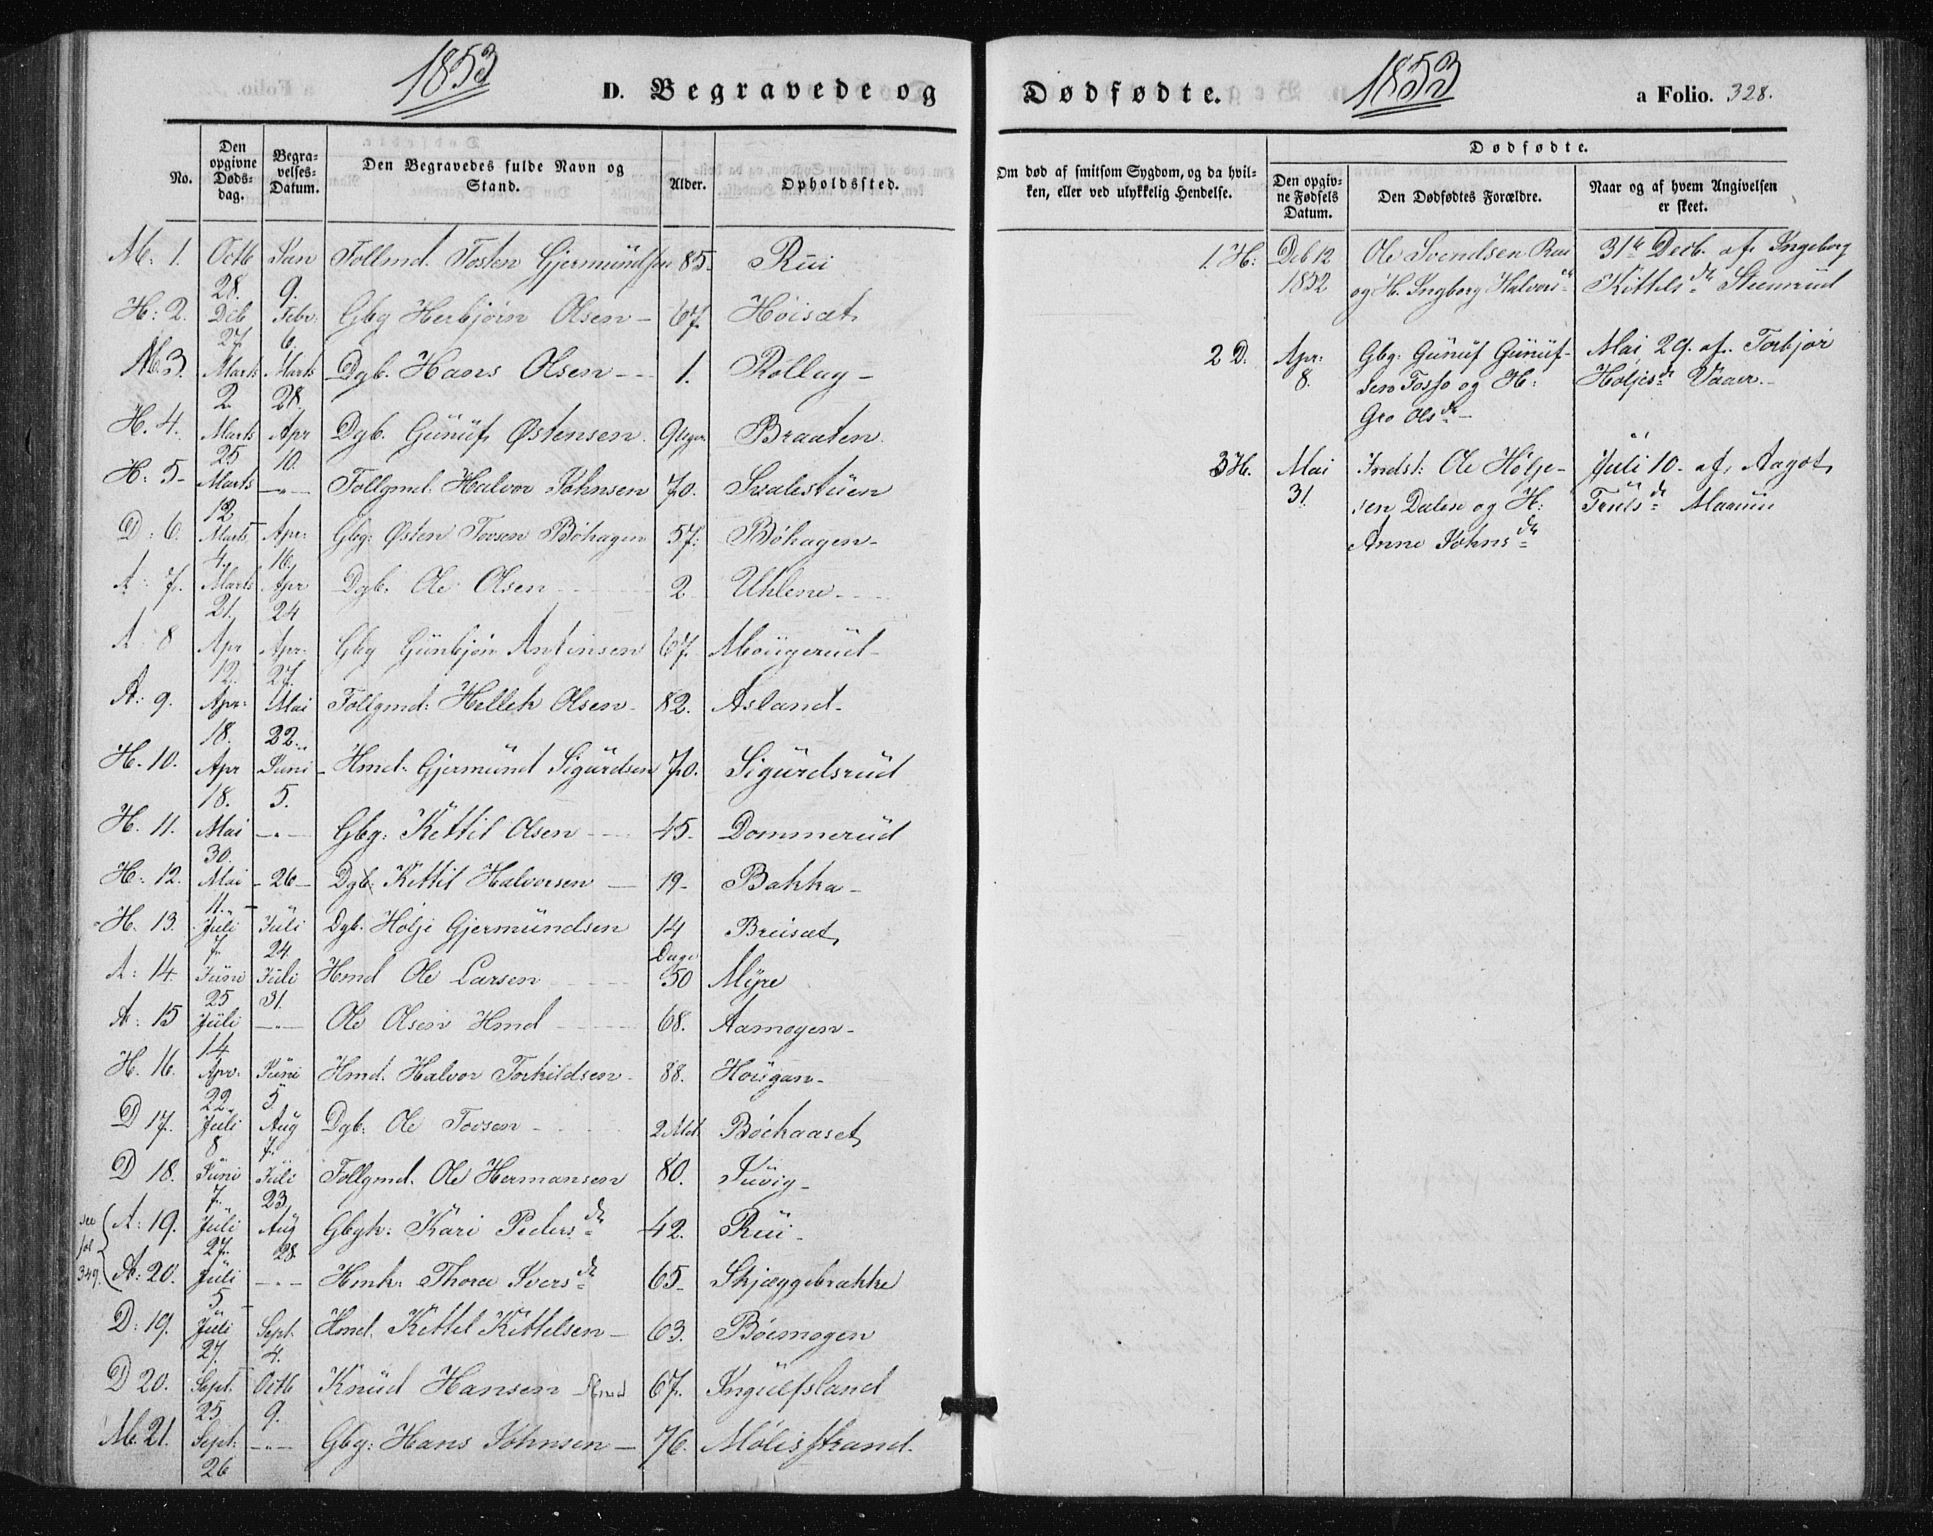 1853
D. Begravede og
No.
Den opgivne Døds-dag.
Begra-velses-Datum.
Den Begravedes fulde Navn og Stand.
Alder.
Opholdssted.
M: 1. Octb 28. Jan 9. Follmd. Tosten Gjermundsen 85. Rui
H: 2. Dcb 27. Febr: 6. Gbg Herbjörn Olsen 67. Höisæt
M. 3. Marts 2. Marts 28. Dgb. Hans Olsen 1. Rollag
H. 4. Marts 25 Apr 10. Dgb. Gunuf Østensen 9 Uger. Braaten.
H: 5 Marts 12 -"- Follgmd. Halvor Johnsen 70. Svalestuen
D: 6. Marts 4. Apr: 16. Gbg: Østen Tovsen Böhagen 57. Böhagen
A: 7. Marts 21. Apr 24 Dgb. Ole Olsen 2 Uhlene
A: 8 Apr 12. Apr. 27. Gbg Gunbjön Antinsen 67. Mougerud
A: 9. Apr: 18. Mai 22. Follgmd: Hellek Olsen 82. Asland
H. 10. Apr 18. Juni 5. Hmd. Gjermund Sigurdsen 70. Sigurdsrud
H. 11. Mai 30. -"- Gbg: Kettil Olsen 45. Dommerud
H: 12. Mai 11. -26- Dgb: Kittil Halvorsen 19 Bakka
H. 13. Juli 7. Juli 24. Dgb. Holje Gjermundsen 14 Dage Breisæt
A: 14. Juni 25 Juli 31. Hmd Ole Larsen 50 Myre
A: 15 Juli 14 -"- Ole Olsen Hmd 68. Aamogen
H. 16. Apr. 22. Juni 5 Hmd. Halvor Torkildsen 88. Hougan
D 17. Juli 8 Aug 7. Dgb: Ole Tovsen 2 Md. Böehaaset
D 18. Juni 7. Juli 23 Follgmd. Ole Hermansen 80. Juvig
see fol 349.
A: 19. Juli 27. Aug 28. Gbgk: Kari Pedersdr 42. Rui
A: 20. Juli 5 -"- Hmk: Thora Iversdr 65 Skjæggebrakke
D: 19. Juli 27. Sept. 4. Hmd. Kittil Kittelsen 63. Böemogen
D 20. Sept. 25 Octb 9. Knud Hansen Hmd 67. Ingulfsland
M. 21. Sept: 26 -"- Gbg: Hans Johnsen 76. Mölisstrand.
Dødfødte.
1853
a Folio. 328.
Om død af smitsom Sygdom, og da hvil-
ken, eller ved ulykkelig Hendelse.
Dødfødte.
Den opgiv-
ne Fødsels
Datum.
Den Dødfødtes Forældre.
Naar og af hvem Angivelsen
er skeet.
1. H: Dcb 12 Ole Svendsen Ruu 31te Decb. af Ingeborg
1852 og H. Ingborg Halvorsdr Kittelsdr Steenrud
2 D. Apr: Gbg: Gunuf Gunuf- Mai 29. af Torbjör
8. sen Fosso og H: Holjesdr Vaaer.
Gro Olsdr
3 H. Mai Indst: Ole Holje- Juli 10. af Aagot
31. sen Dalen og H: Truelsdr Maruu
Anne Johnsdr